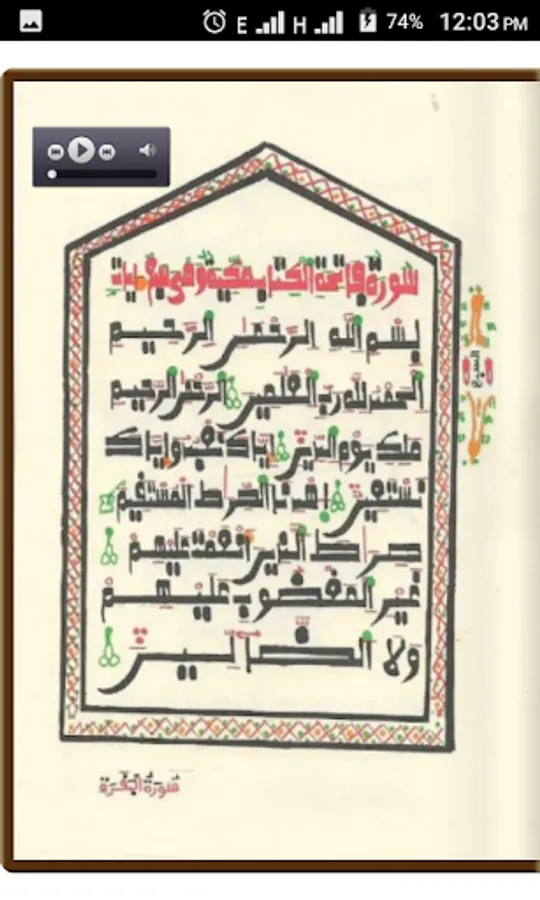 E H 74% 12:03 PM
سورة فاتحة الكتاب مكية وهي سبع ءايات
بسم الله الرحمن الرحيم
الحمد لله رب العلمين الرحمن الرحيم
ملك يوم الدين إياك نعبد وإياك
نستعين اهدنا الصراط المستقيم
صراط الذين أنعمت عليهم
غير المغضوب عليهم
ولا الضالين
السبع
سورة البقرة